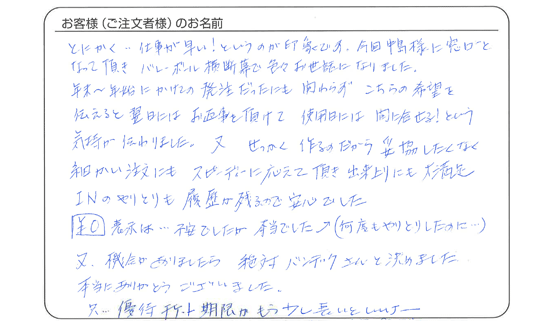 お客様(ご注文者様)のお名前
とにかく…仕事が早い!というのが印象です。今回鴨様に窓口と
なって頂き バレーボール横断幕で色々お世話になりました。
年末〜年始にかけての発注だったにも関わらず こちらの希望を
伝えると翌日にはお返事を頂けて 使用日には間に合せる!という
気持が伝わりました。又 せっかく作るのだから妥協したくなく
細かい注文にも スピーディーに応えて頂き出来上りにも大満足
INのやりとりも履歴が残るので安心でした
¥0 表示は…不安でしたが本当でした→(何度もやりとりしたのに…)
又、機会がありましたら 絶対バンテックさんと決めました
本当にありがとうございました。
只…優待チケット期限がもう少し長いと